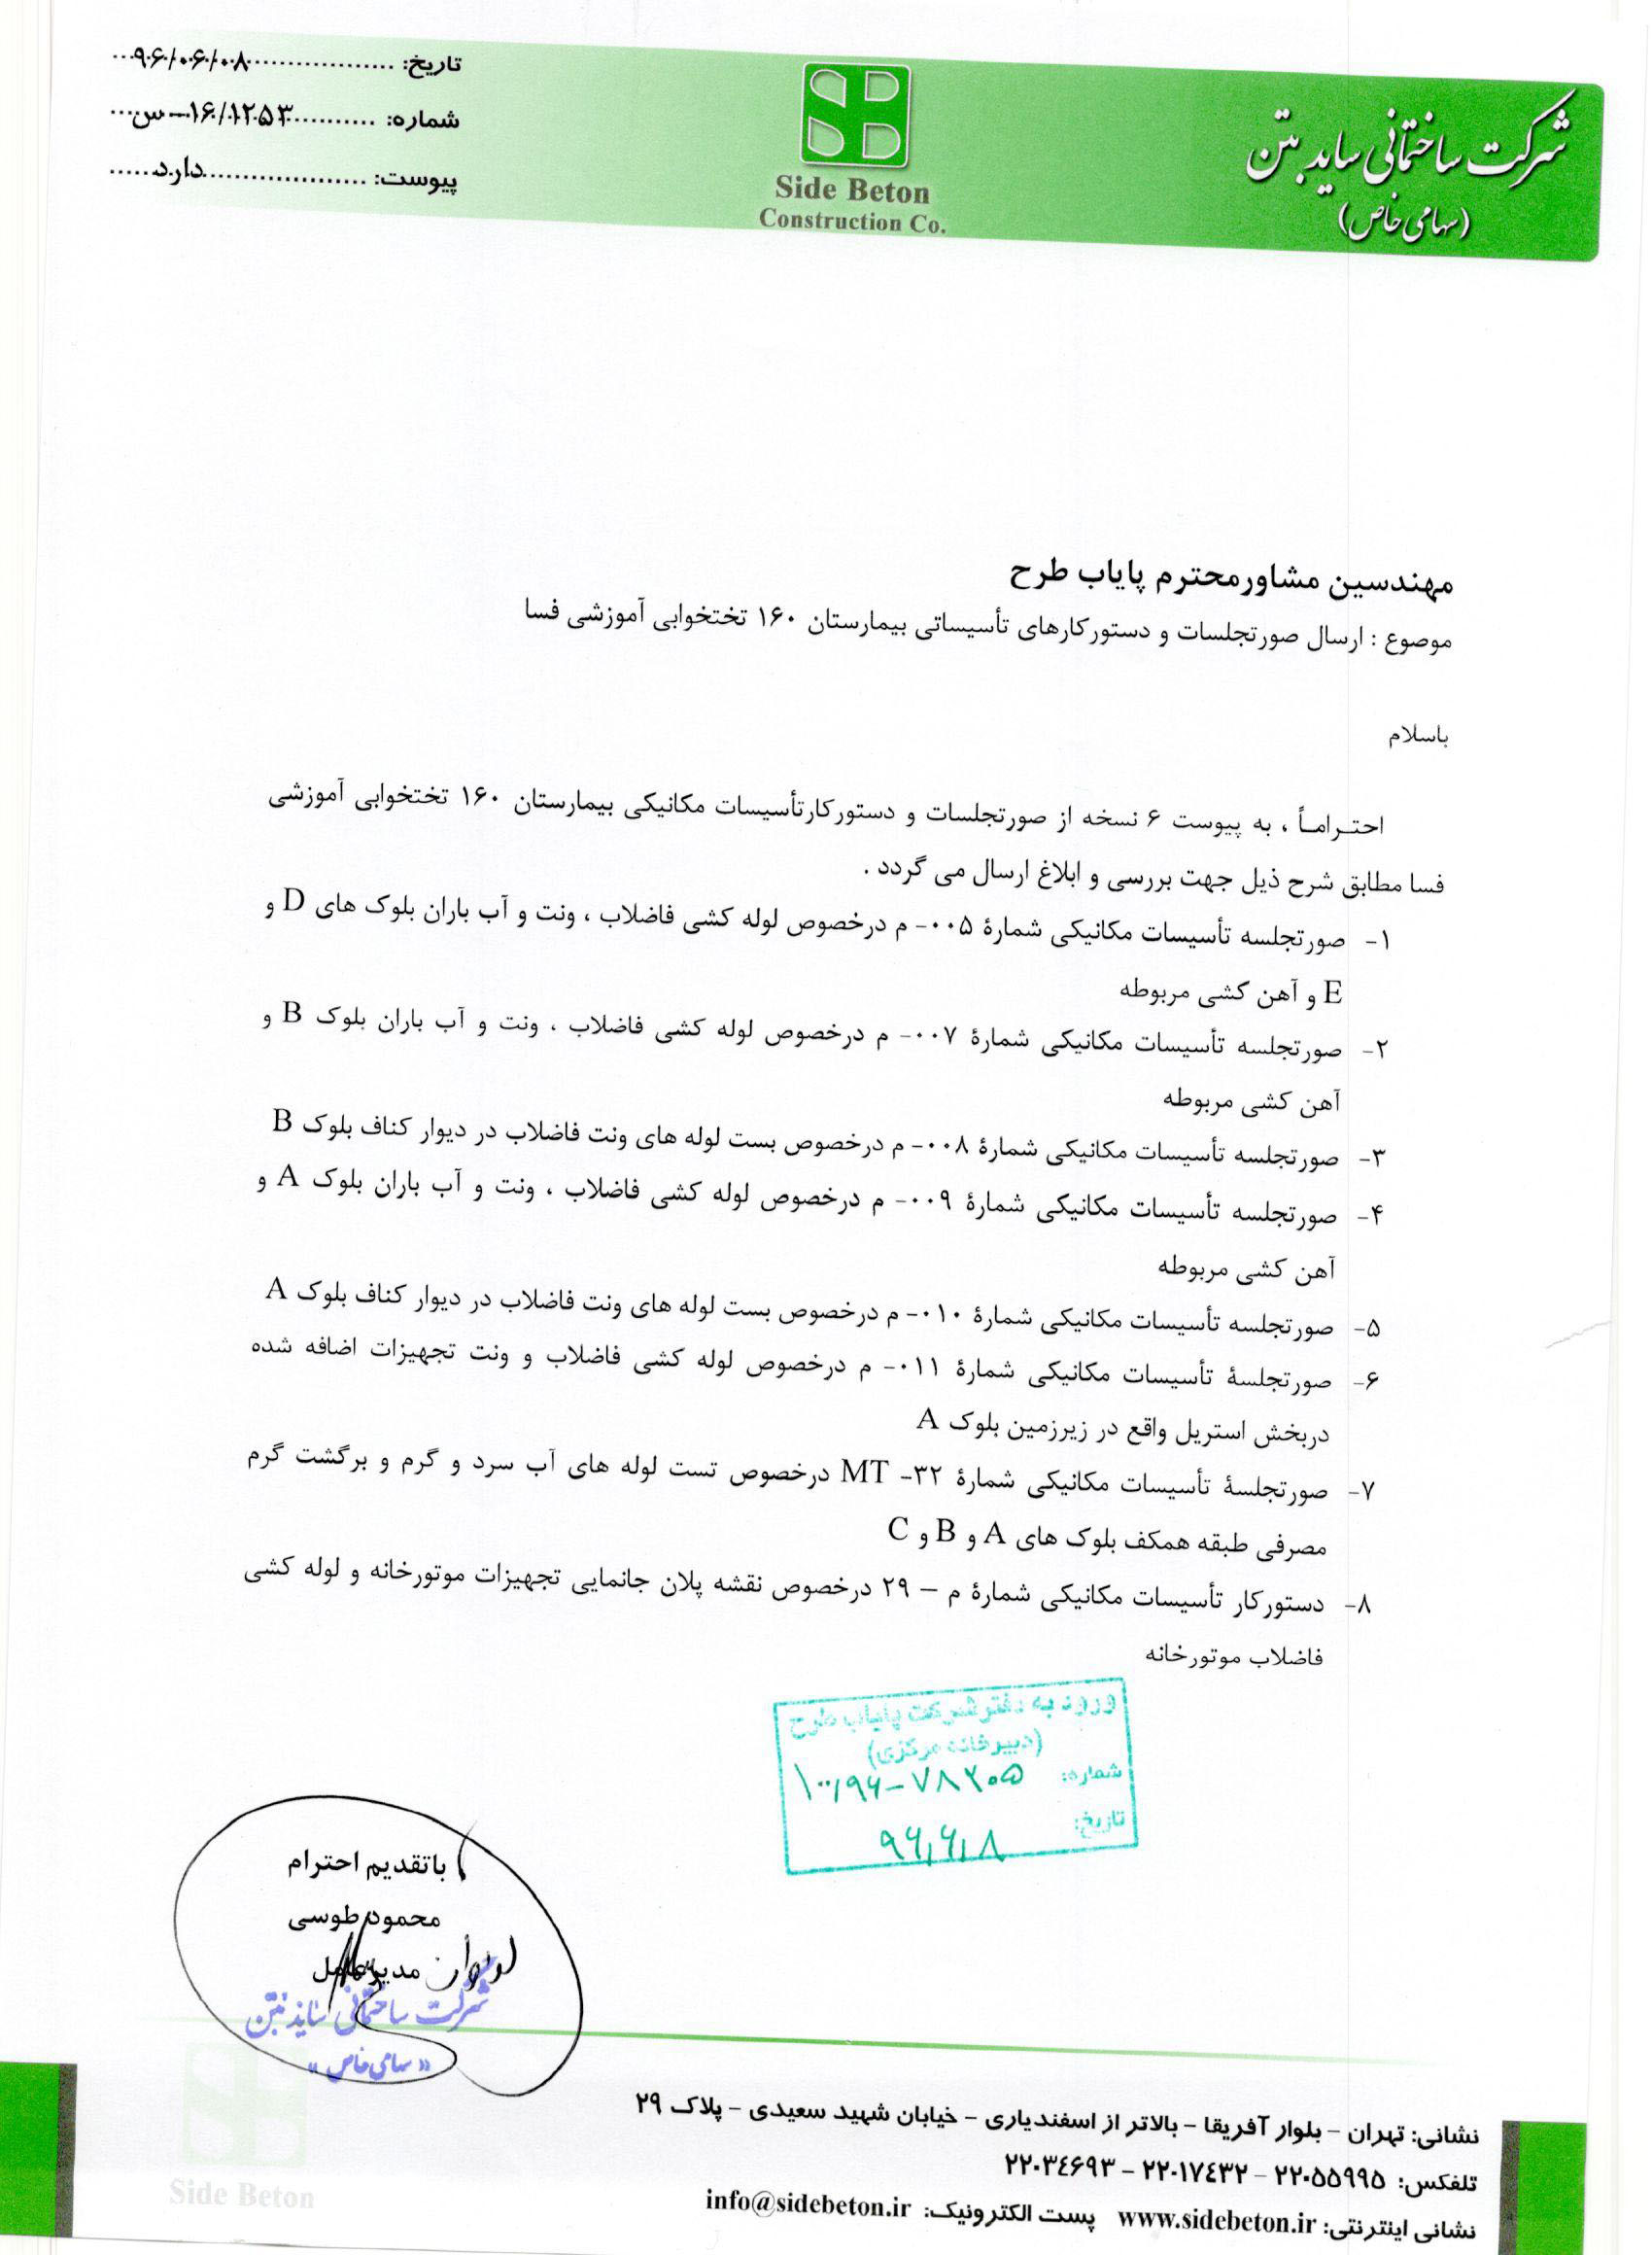 تاریخ: ۹۶/۰۶/۰۸
شماره: ۱۶/۱۲۵۳-س
پیوست: دارد
Side Beton
Construction Co.
شرکت ساختمانی ساید بتن
(سهامی خاص)
مهندسین مشاورمحترم پایاب طرح
موضوع : ارسال صورتجلسات و دستورکارهای تأسیساتی بیمارستان ۱۶۰ تختخوابی آموزشی فسا
باسلام
احتـرامـاً ، به پیوست ۶ نسخه از صورتجلسات و دستورکارتأسیسات مکانیکی بیمارستان ۱۶۰ تختخوابی آموزشی
فسا مطابق شرح ذیل جهت بررسی و ابلاغ ارسال می گردد .
۱- صورتجلسه تأسیسات مکانیکی شمارۀ ۰۰۵- م درخصوص لوله کشی فاضلاب ، ونت و آب باران بلوک های D و
E و آهن کشی مربوطه
۲- صورتجلسه تأسیسات مکانیکی شمارۀ ۰۰۷- م درخصوص لوله کشی فاضلاب ، ونت و آب باران بلوک B و
آهن کشی مربوطه
۳- صورتجلسه تأسیسات مکانیکی شمارۀ ۰۰۸- م درخصوص بست لوله های ونت فاضلاب در دیوار کناف بلوک B
۴- صورتجلسه تأسیسات مکانیکی شمارۀ ۰۰۹- م درخصوص لوله کشی فاضلاب ، ونت و آب باران بلوک A و
آهن کشی مربوطه
۵- صورتجلسه تأسیسات مکانیکی شمارۀ ۰۱۰- م درخصوص بست لوله های ونت فاضلاب در دیوار کناف بلوک A
۶- صورتجلسۀ تأسیسات مکانیکی شمارۀ ۰۱۱- م درخصوص لوله کشی فاضلاب و ونت تجهیزات اضافه شده
دربخش استریل واقع در زیرزمین بلوک A
۷- صورتجلسۀ تأسیسات مکانیکی شمارۀ ۳۲- MT درخصوص تست لوله های آب سرد و گرم و برگشت گرم
مصرفی طبقه همکف بلوک های A و B و C
۸- دستورکار تأسیسات مکانیکی شمارۀ م – ۲۹ درخصوص نقشه پلان جانمایی تجهیزات موتورخانه و لوله کشی
فاضلاب موتورخانه
ورود به دفتر شرکت پایاب طرح
(دبیرخانه مرکزی)
شماره: ۱۰۰/۹۶-۷۸۲۰۵
تاریخ: ۹۶/۶/۸
باتقدیم احترام
محمود طوسی
مدیرعامل
شرکت ساختمانی ساید بتن
«سهامی خاص»
نشانی: تهران - بلوار آفریقا - بالاتر از اسفندیاری - خیابان شهید سعیدی - پلاک ۲۹
تلفکس: ۲۲۰۵۵۹۹۵ - ۲۲۰۱۷۴۳۲ - ۲۲۰۳۴۶۹۳
نشانی اینترنتی: www.sidebeton.ir پست الکترونیک: info@sidebeton.ir
Side Beton